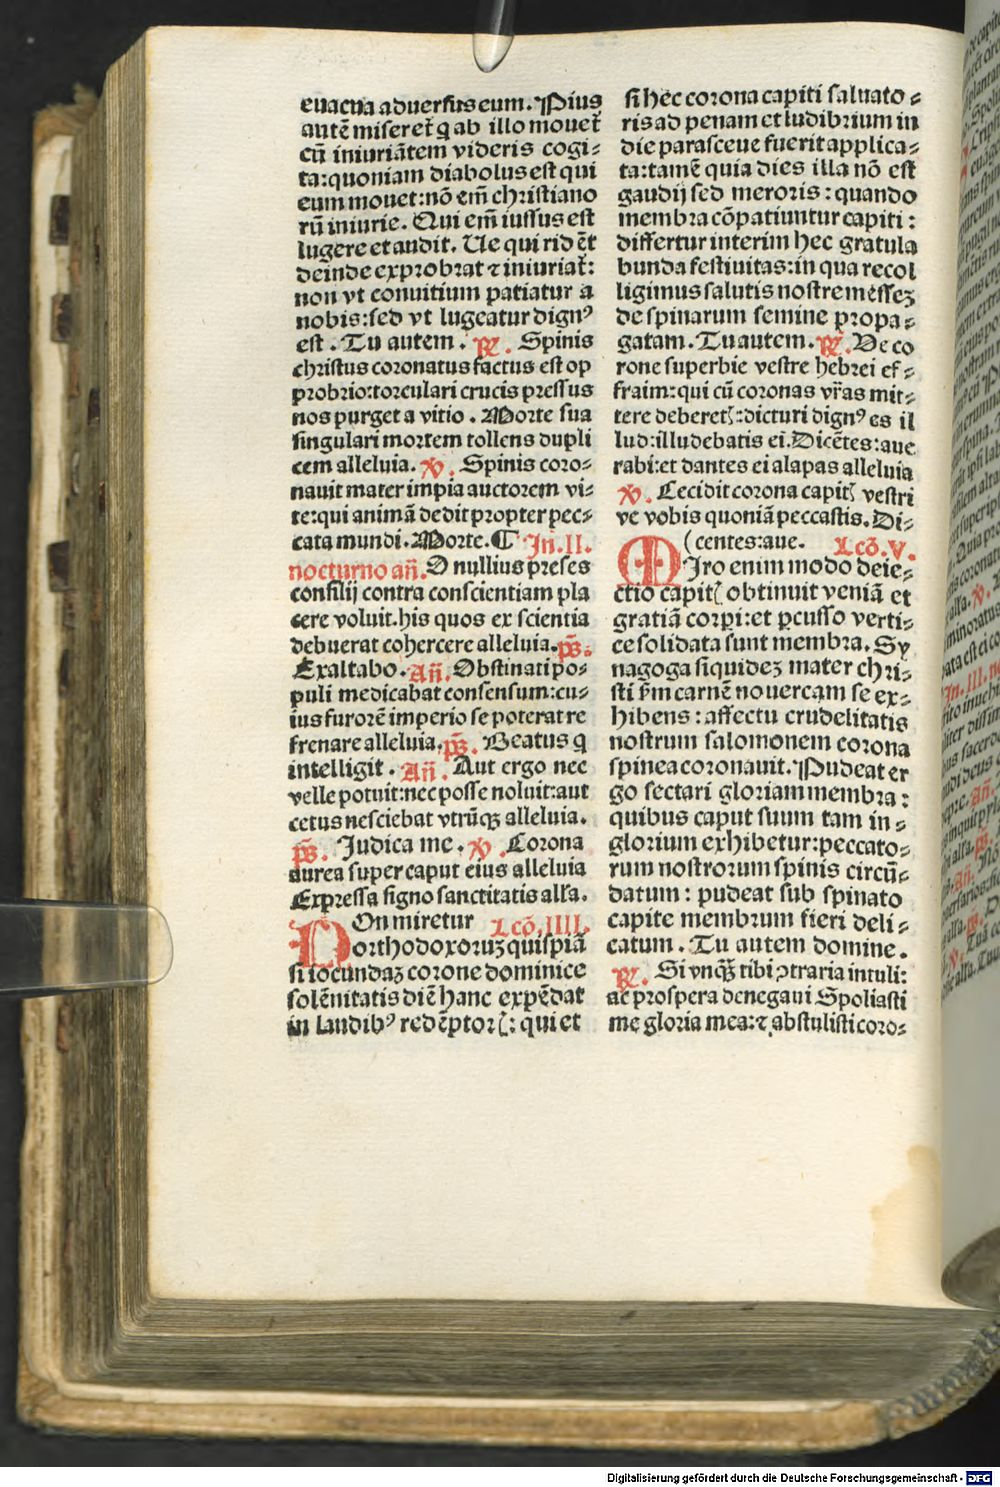 euacua aduersus eum. Pius
autē miseret̄ q̄ ab illo mouet̄
cū iniuriātem videris cogi-
ta: quoniam diabolus est qui
eum mouet: nō em̄ christiano
rū iniurie. Qui em̄ iussus est
lugere et audit. Ue qui ridēt
deinde exprobrat ⁊ iniuriat̄:
non vt conuitium patiatur a
nobis: sed vt lugeatur dignꝰ
est. Tu autem. ℟. Spinis
christus coronatus factus est op
probrio: torculari crucis pressus
nos purget a vitio. Morte sua
singulari mortem tollens dupli
cem alleluia. ℣. Spinis coro-
nauit mater impia auctorem vi-
te: qui animā dedit propter pec-
cata mundi. Morte. ¶ In. II.
nocturno añ. O nullius preses
consilij contra conscientiam pla
cere voluit. his quos ex scientia
debuerat cohercere alleluia. ps̄.
Exaltabo. Añ. Obstinati po-
puli medicabat consensum: cu-
ius furorē imperio se poterat re
frenare alleluia. ps̄. Beatus q
intelligit. Añ. Aut ergo nec
velle potuit: nec posse noluit: aut
cetus nesciebat vtrūqꝫ alleluia.
ps̄. Judica me. ℣. Corona
aurea super caput eius alleluia
Expressa signo sanctitatis alła.
NOn miretur Lcō. IIII.
orthodoxoruꝫ quispiā
si iocundaꝫ corone dominice
solēnitatis diē hanc expēdat
in laudibꝰ redēptorꝭ: qui et
si hec corona capiti saluato-
ris ad penam et ludibrium in
die parasceue fuerit applica-
ta: tamē quia dies illa nō est
gaudij sed meroris: quando
membra cōpatiuntur capiti:
differtur interim hec gratula
bunda festiuitas: in qua recol
ligimus salutis nostre messeꝫ
de spinarum semine propa-
gatam. Tu autem. ℟. Ve co
rone superbie vestre hebrei ef-
fraim: qui cū coronas vr̄as mit-
tere deberetꝭ: dicturi dignꝰ es il
lud: illudebatis ei. Dicētes: aue
rabi: et dantes ei alapas alleluia
℣. Cecidit corona capitꝭ vestri
ve vobis quoniā peccastis. Di-
(centes: aue. Lcō. V.
MIro enim modo deie-
ctio capitꝭ obtinuit veniā et
gratiā corpi: et ꝑcusso verti-
ce solidata sunt membra. Sy
nagoga siquideꝫ mater chri-
sti ẜm carnē nouercam se ex-
hibens: affectu crudelitatis
nostrum salomonem corona
spinea coronauit. Pudeat er
go sectari gloriam membra:
quibus caput suum tam in-
glorium exhibetur: peccato-
rum nostrorum spinis circū-
datum: pudeat sub spinato
capite membrum fieri deli-
catum. Tu autem domine.
℟. Si vnqꝫ̄ tibi ꝯtraria intuli:
ac prospera denegaui Spoliasti
me gloria mea: ⁊ abstulisti coro-
Digitalisierung gefördert durch die Deutsche Forschungsgemeinschaft - DFG